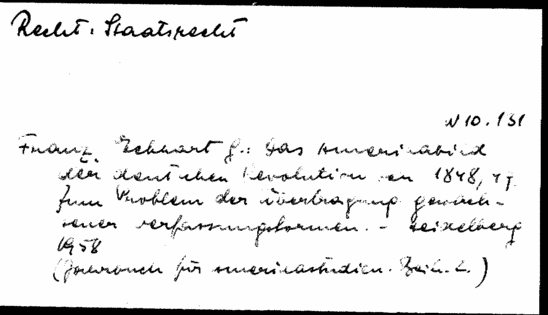 Recht: Staatsrecht
N 10.131
Franz, Eckhart G.: Das Amerikabild
der deutschen Revolution von 1848/49.
Zum Problem der Übertragung gewach-
sener Verfassungsformen. - Heidelberg
1958
(Jahrbuch für Amerikastudien. Beih. 2.)